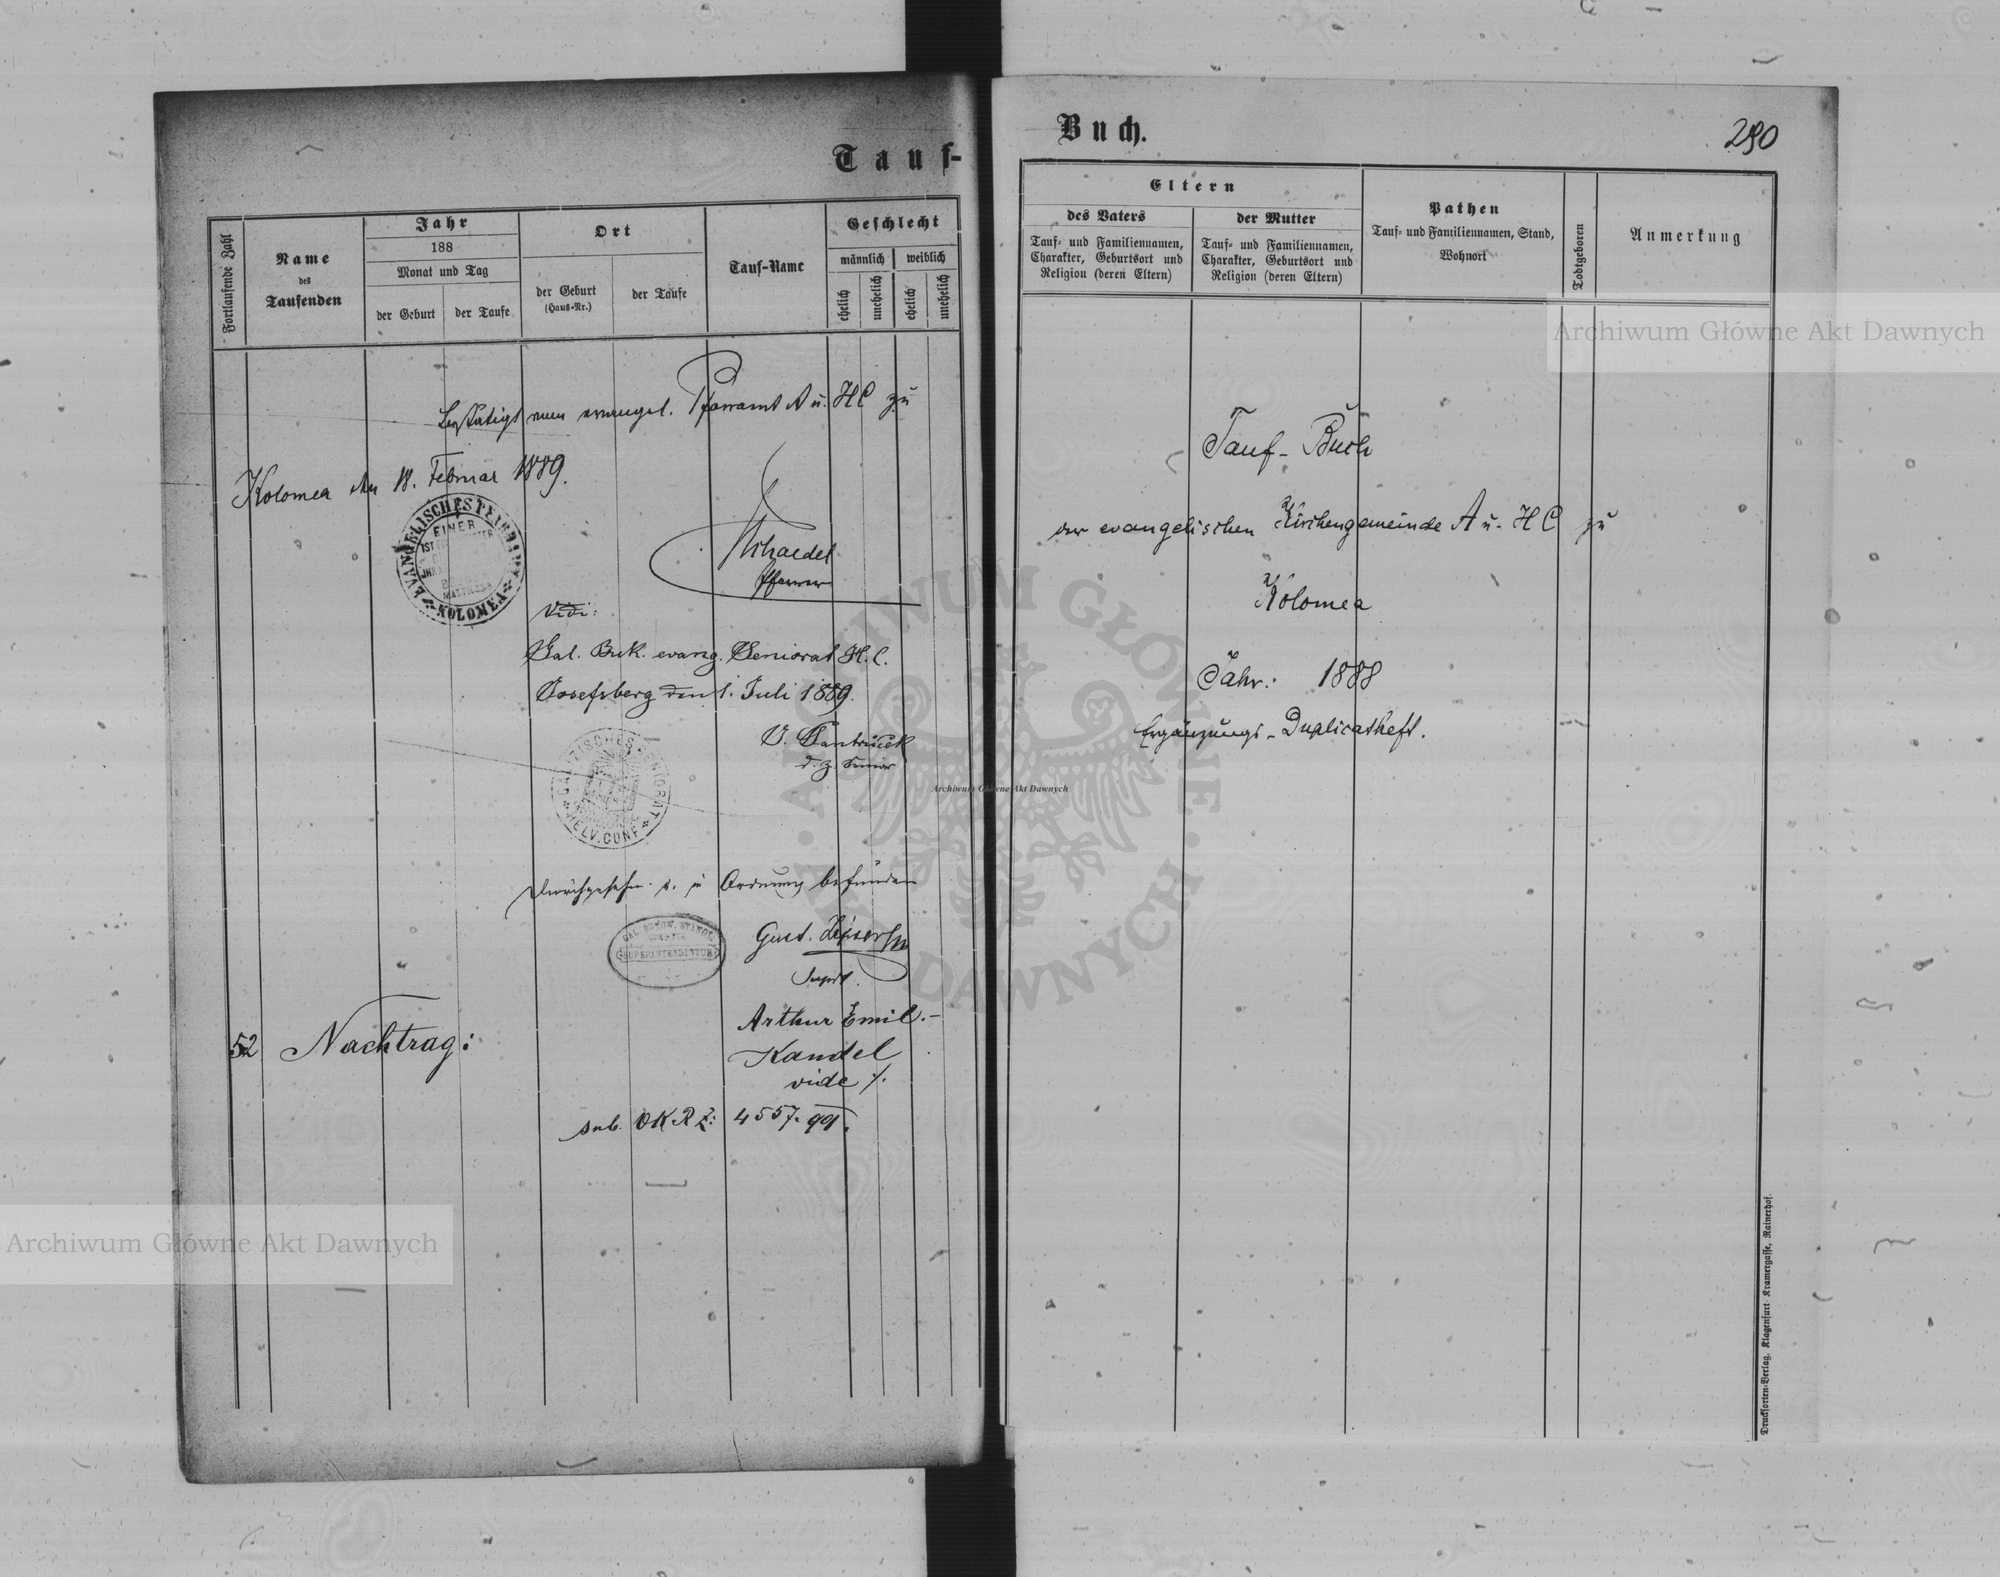 Tauf-
Fortlaufende Zahl
Name
des
Taufenden
Jahr
188
Monat und Tag
der Geburt
der Taufe
Ort
der Geburt
(Haus-Nr.)
der Taufe
Tauf-Name
Geschlecht
männlich
weiblich
ehelich
unehelich
ehelich
unehelich
Bestätigt vom evangel. Pfarramt A u. HC zu
Kolomea den 18. Februar 1889.
EVANGELISCHES PFARRAMT
EINER
KOLOMEA
Pfarrer
Vidi:
Gal. Buk. evang. Seniorat H. C.
Josefsberg den 1. Juli 1889.
d. z. Senior
GALIZISCHES SENIORAT
HELV. CONF.
Durchgesehn u. in Ordnung befunden
SUPERINTENDENTUR
Gust.
Supdt.
52 Nachtrag:
Arthur Emil.-
Kandel
vide ./.
sub. OKRZ: 4557.99.
Buch.
290
Eltern
des Vaters
Tauf- und Familiennamen,
Charakter, Geburtsort und
Religion (deren Eltern)
der Mutter
Tauf- und Familiennamen,
Charakter, Geburtsort und
Religion (deren Eltern)
Pathen
Tauf- und Familiennamen, Stand,
Wohnort
Todtgeboren
Anmerkung
Tauf-Buch
der evangelischen Kirchengemeinde A u. HC zu
Kolomea
Jahr: 1888
Ergänzungs-Duplicatheft.
Drucksorten-Verlag, Klagenfurt Kramergasse, Rainerhof.
Archiwum Główne Akt Dawnych
Archiwum Główne Akt Dawnych
Archiwum Główne Akt Dawnych
ARCHIWUM GŁÓWNE
AKT DAWNYCH